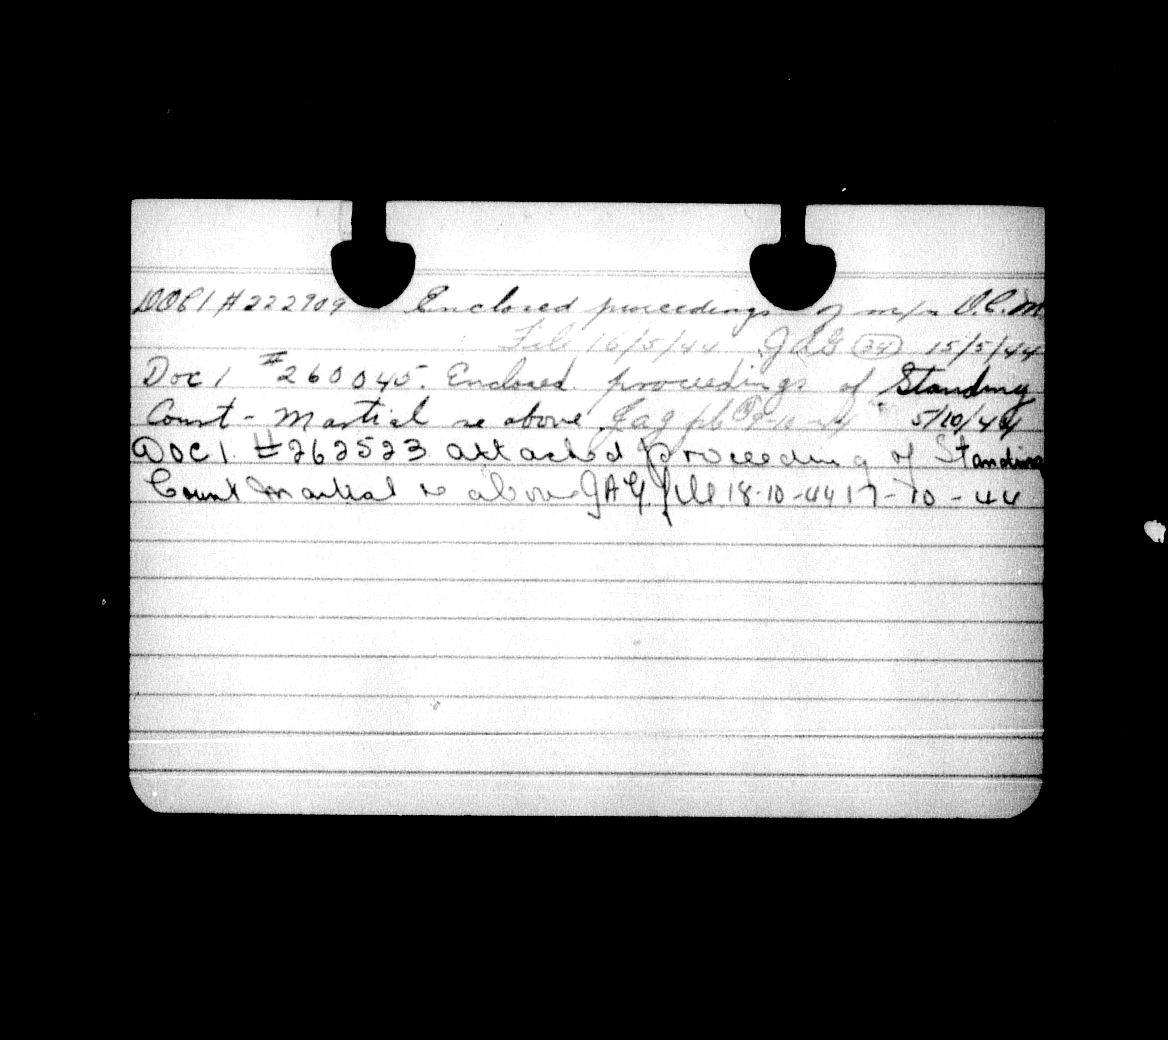 DOC 1 #222909 Enclosed proceedings of m/n D.C.M.
File 16/5/44 JAG (34) 15/5/44
Doc 1 #260045. Enclosed proceedings of Standing
Court-Martial re above Jag 9-10-44 5/10/44
DOC 1. #262523 attached proceeding of Standing
Court Martial re above JAG. file 18-10-44 17-10-44